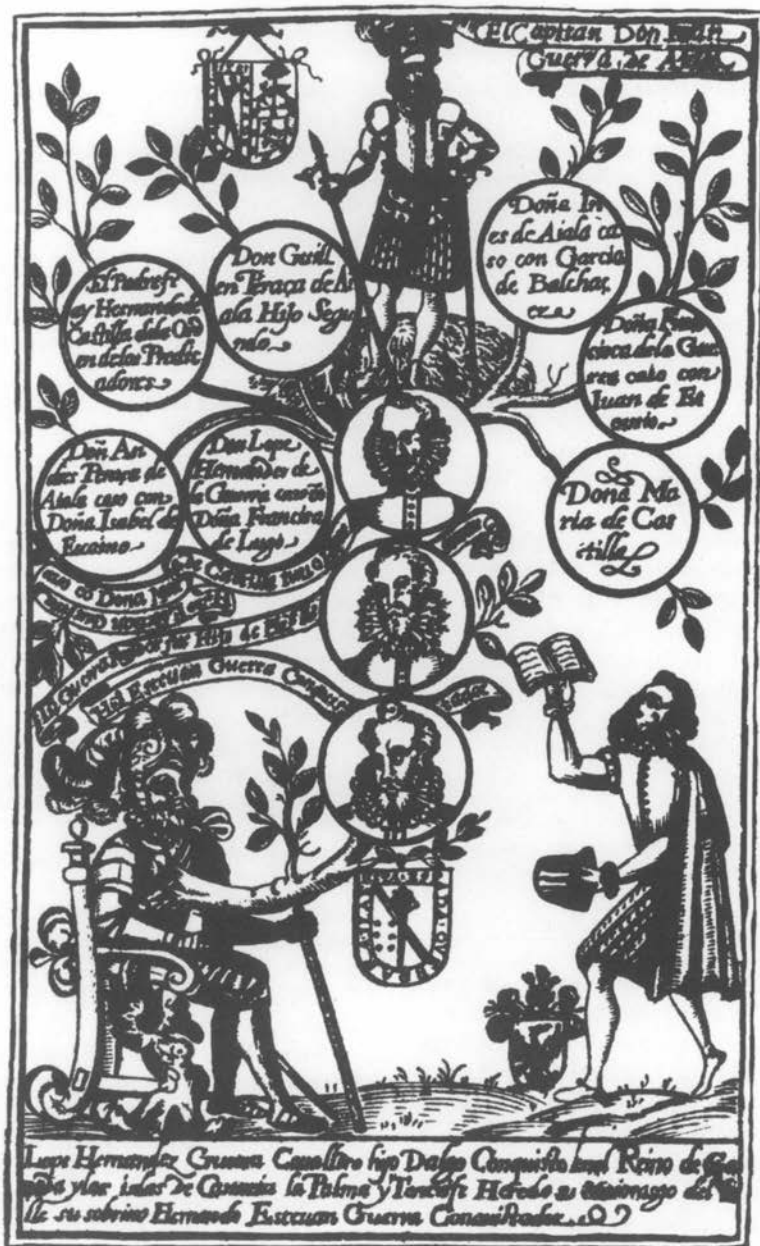 El Capitan Don Juan
Guerra de
Doña In
es de Aiala ca
so con Garcia
de Balchaç
er
Don Guill
en Peraça de Ai
ala Hijo Segu
ndo
El Padre fr
ay Hernando de
Castilla dela Ord
en delos Predic
adores
Doña Fran
cisca de la Gue
rra caso con
Juan de
Don An
dres Peraça de
Aiala caso con
Doña Isabel de
Don Lope
Hernandes de
la Guerra
Doña Francisca
de Lugo
Dona Ma
ria de Cas
tilla
Doña
de Castilla
Guerra Hijo de
Hernã Esteuan Guerra Conquis
tador
Lope Hernandez Guerra Cavallero hijo Dalgo Conquisto en el Reino de
y las islas de Canaria la Palma y Tenerife Heredo su maiorasgo del Va
lle su sobrino Hernando Esteuan Guerra Conquistador